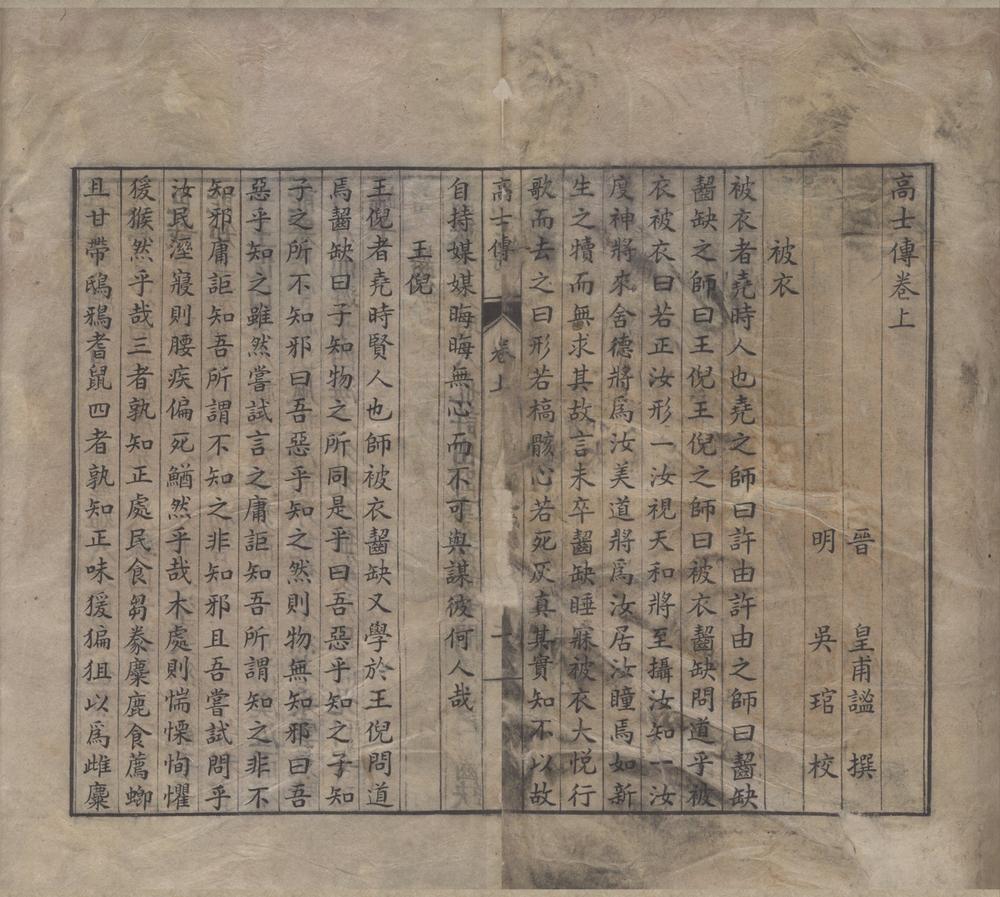 高士傳卷上
晉 皇甫謐 撰
明 吳琯 校
被衣
被衣者堯時人也堯之師曰許由許由之師曰齧缺
齧缺之師曰王倪王倪之師曰被衣齧缺問道乎被
衣被衣曰若正汝形一汝視天和將至攝汝知一汝
度神將來舍德將爲汝美道將爲汝居汝瞳焉如新
生之犢而無求其故言未卒齧缺睡寐被衣大悅行
歌而去之曰形若槁骸心若死灰真其實知不以故
高士傳 卷上 一
自持媒媒晦晦無心而不可與謀彼何人哉
王倪
王倪者堯時賢人也師被衣齧缺又學於王倪問道
焉齧缺曰子知物之所同是乎曰吾惡乎知之子知
子之所不知邪曰吾惡乎知之然則物無知邪曰吾
惡乎知之雖然嘗試言之庸詎知吾所謂知之非不
知邪庸詎知吾所謂不知之非知邪且吾嘗試問乎
汝民溼寢則腰疾偏死鰌然乎哉木處則惴慄恂懼
猨猴然乎哉三者孰知正處民食芻豢麋鹿食薦蝍
且甘帶鴟鴉耆鼠四者孰知正味猨猵狙以爲雌麋